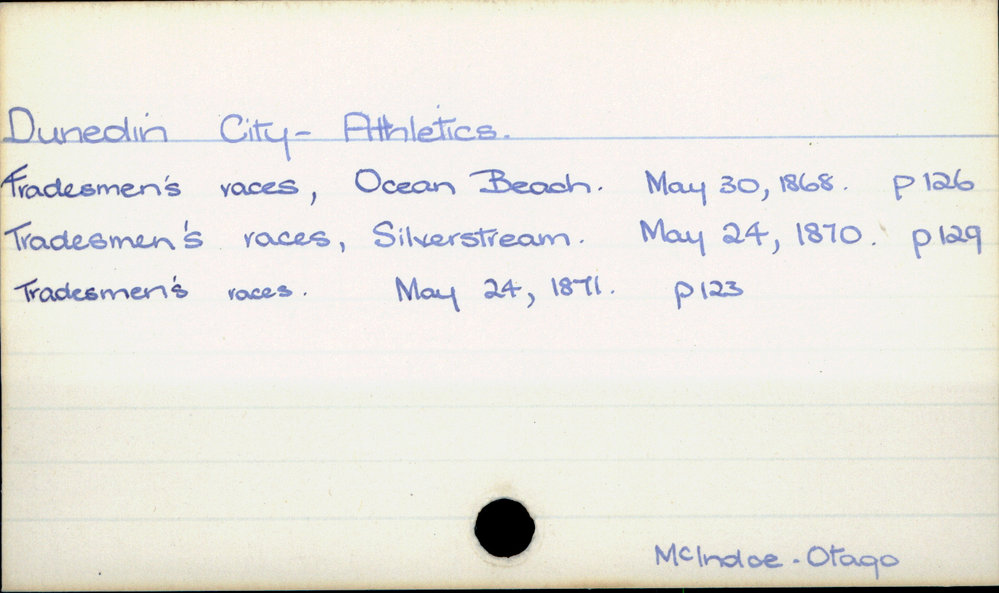 Dunedin City - Athletics.
Tradesmen's races, Ocean Beach. May 30, 1868. p 126
Tradesmen's races, Silverstream. May 24, 1870. p 129
Tradesmen's races. May 24, 1871. p 123
McIndoe - Otago